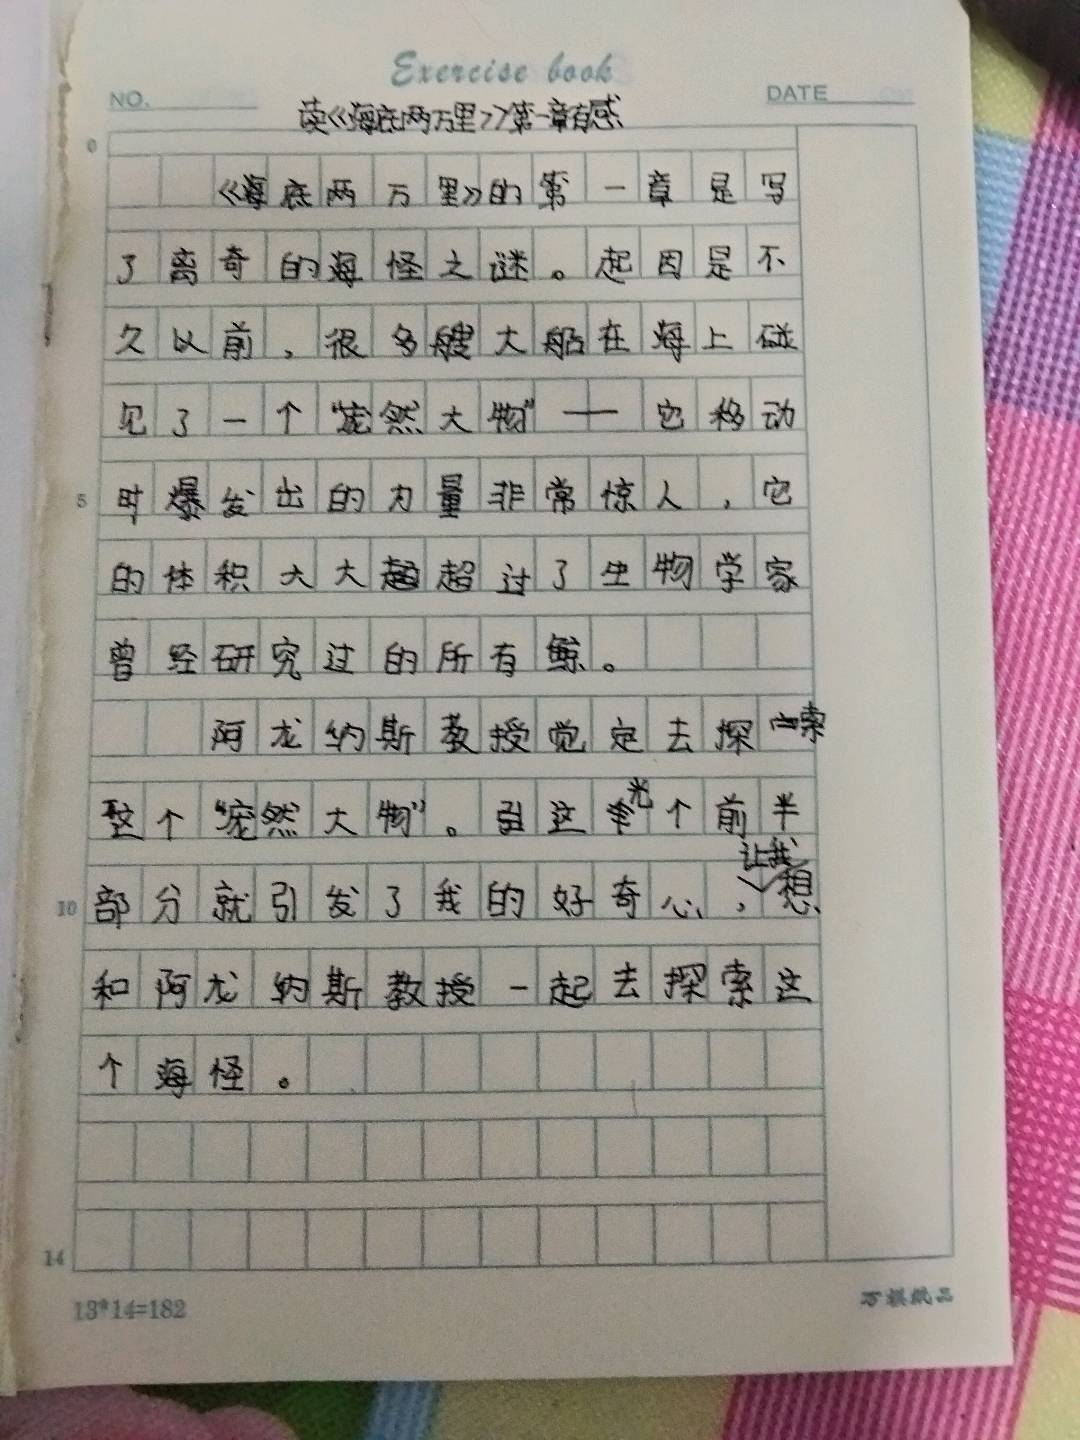 Exercise book
NO.
DATE
读《海底两万里》第一章有感
0
《海底两万里》的第一章是写
了离奇的海怪之谜。起因是不
久以前，很多艘大船在海上碰
见了一个“庞然大物”——它移动
5
时爆发出的力量非常惊人，它
的体积大大超过了生物学家
曾经研究过的所有鲸。
阿龙纳斯教授觉定去探索
这个“庞然大物”。这光个前半
让我
10
部分就引发了我的好奇心，想
和阿龙纳斯教授一起去探索这
个海怪。
14
13*14=182
万棋纸品